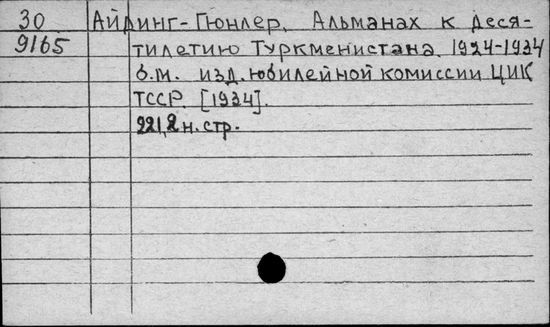 30 Айдинг-Гюнлер. Альманах к деся-
9165 тилетию Туркменистана 1924-1934
б.м. изд. юбилейной комиссии ЦИК
ТССР. [1934].
221,2 н. стр.